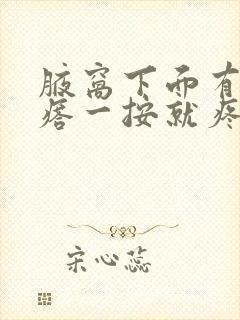 腋窝下面有
痞一按就疼
宋心蕊